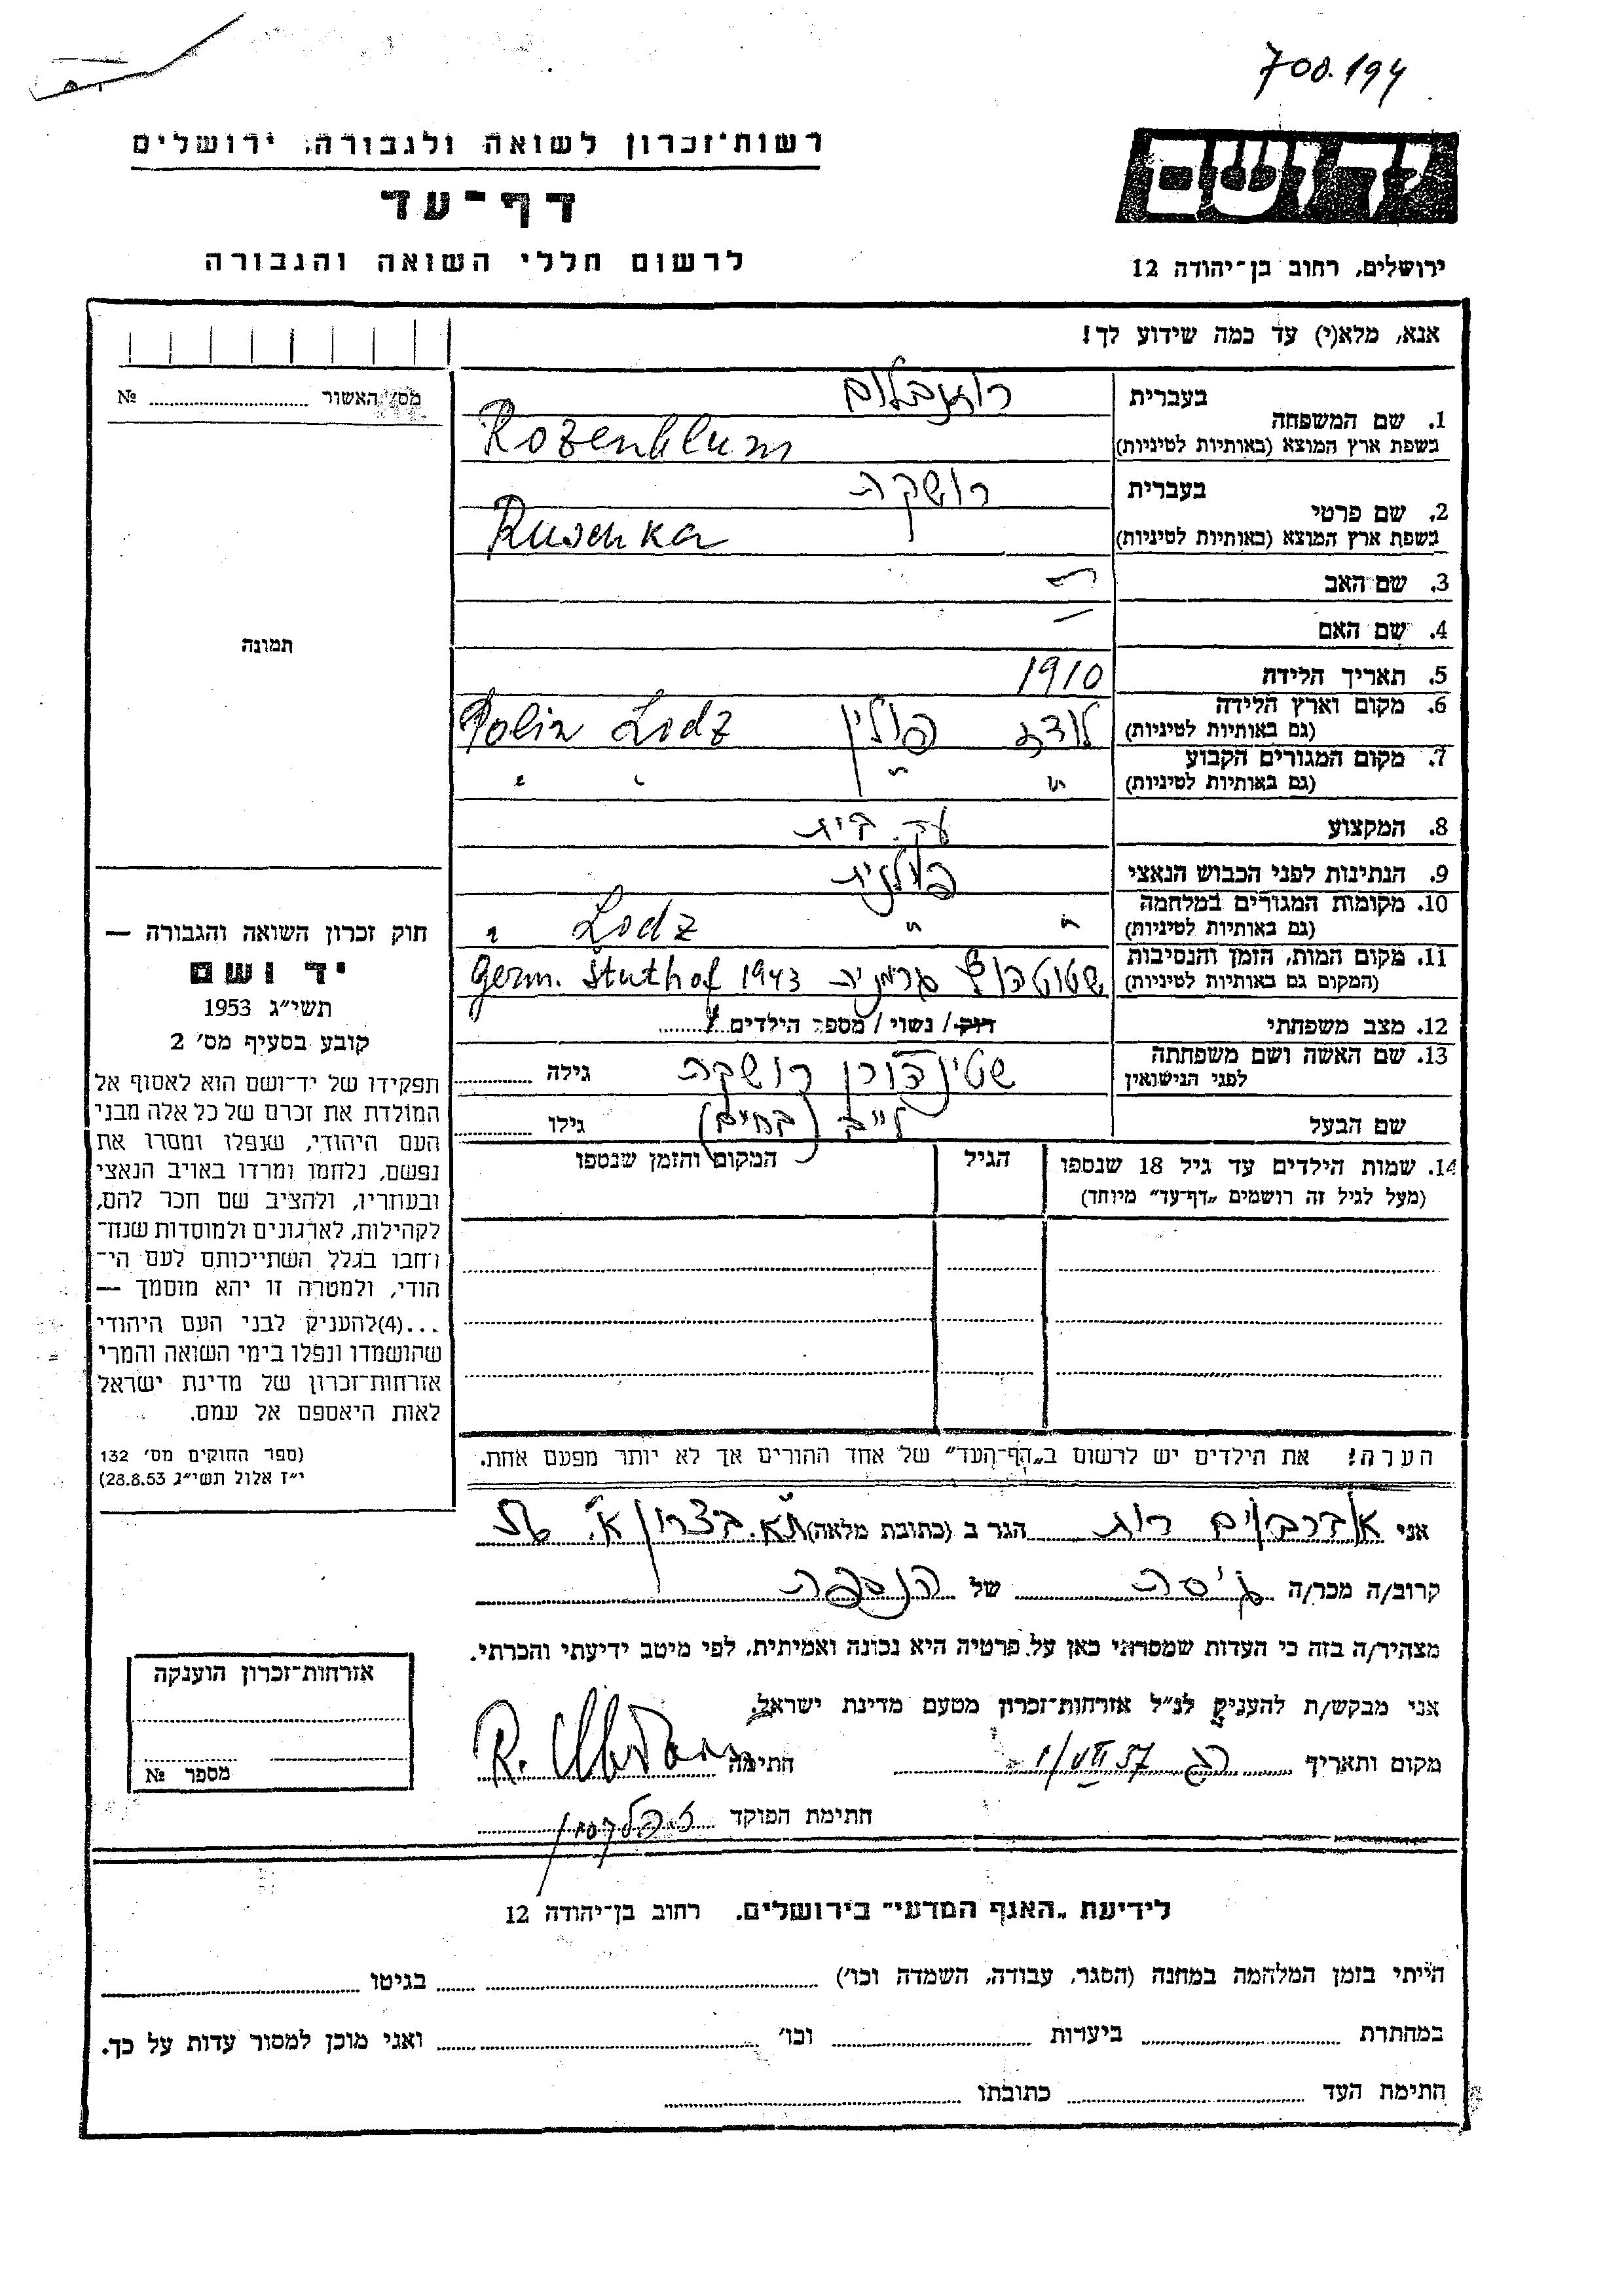 700.194
רשות־זכרון לשואה ולגבורה, ירושלים
דף־עד
לרשום חללי השואה והגבורה
ידושם
ירושלים, רחוב בן־יהודה 12
אנא, מלא(י) עד כמה שידוע לך!
מס׳ האשור № 
תמונה
חוק זכרון השואה והגבורה —
יד ושם
תשי״ג 1953
קובע בסעיף מס׳ 2
תפקידו של יד־ושם הוא לאסוף אל
המולדת את זכרם של כל אלה מבני
העם היהודי, שנפלו ומסרו את
נפשם, נלחמו ומרדו באויב הנאצי
ובעוזריו, ולהציב שם וזכר להם,
לקהילות, לארגונים ולמוסדות שנח־
רחבו בגלל השתייכותם לעם הי־
הודי, ולמטרה זו יהא מוסמך —
...(4)להעניק לבני העם היהודי
שהושמדו ונפלו בימי השואה והמרי
אזרחות־זכרון של מדינת ישראל
לאות היאספם אל עמם.
(ספר החוקים מס׳ 132
י״ז אלול תשי״ג 28.8.53)
1. שם המשפחה בעברית רוזנבלום
בשפת ארץ המוצא (באותיות לטיניות) Rozenblum
2. שם פרטי בעברית רושקה
בשפת ארץ המוצא (באותיות לטיניות) Ruschka
3. שם האב
4. שם האם —
5. תאריך הלידה 1910
6. מקום וארץ הלידה (גם באותיות לטיניות) לודז פולין Lodz Polin
7. מקום המגורים הקבוע (גם באותיות לטיניות) " " " "
8. המקצוע עק. בית
9. הנתינות לפני הכבוש הנאצי פולנית
10. מקומות המגורים במלחמה (גם באותיות לטיניות) " " Lodz "
11. מקום המות, הזמן והנסיבות (המקום גם באותיות לטיניות) שטוטהוף גרמניה 1943 Germ. Stuthof
12. מצב משפחתי רוק/ נשוי / מספר הילדים
13. שם האשה ושם משפחתה לפני הנישואין שטיינהורן רושקה גילה
שם הבעל לייב (בחיים) גילו
14. שמות הילדים עד גיל 18 שנספו הגיל המקום והזמן שנספו
(מעל לגיל זה רושמים „דף־עד״ מיוחד)
הערה! את הילדים יש לרשום ב„דף־העד״ של אחד ההורים אך לא יותר מפעם אחת.
אני אדרבוים רות הגר ב (כתובת מלאה) ת״א. ביצרון א׳
קרוב/ה מכר/ה גיסה של הנספה
מצהיר/ה בזה כי העדות שמסרתי כאן על פרטיה היא נכונה ואמיתית, לפי מיטב ידיעתי והכרתי.
אני מבקש/ת להעניק לנ״ל אזרחות־זכרון מטעם מדינת ישראל.
מקום ותאריך 1/VII 57 חתימה R.
חתימת הפוקד
אזרחות־זכרון הוענקה
מספר №
לידיעת „האגף המדעי״ בירושלים. רחוב בן־יהודה 12
הייתי בזמן המלחמה במחנה (הסגר, עבודה, השמדה וכו׳) בגיטו
במחתרת ביערות וכו׳ ואני מוכן למסור עדות על כך.
חתימת העד כתובתו